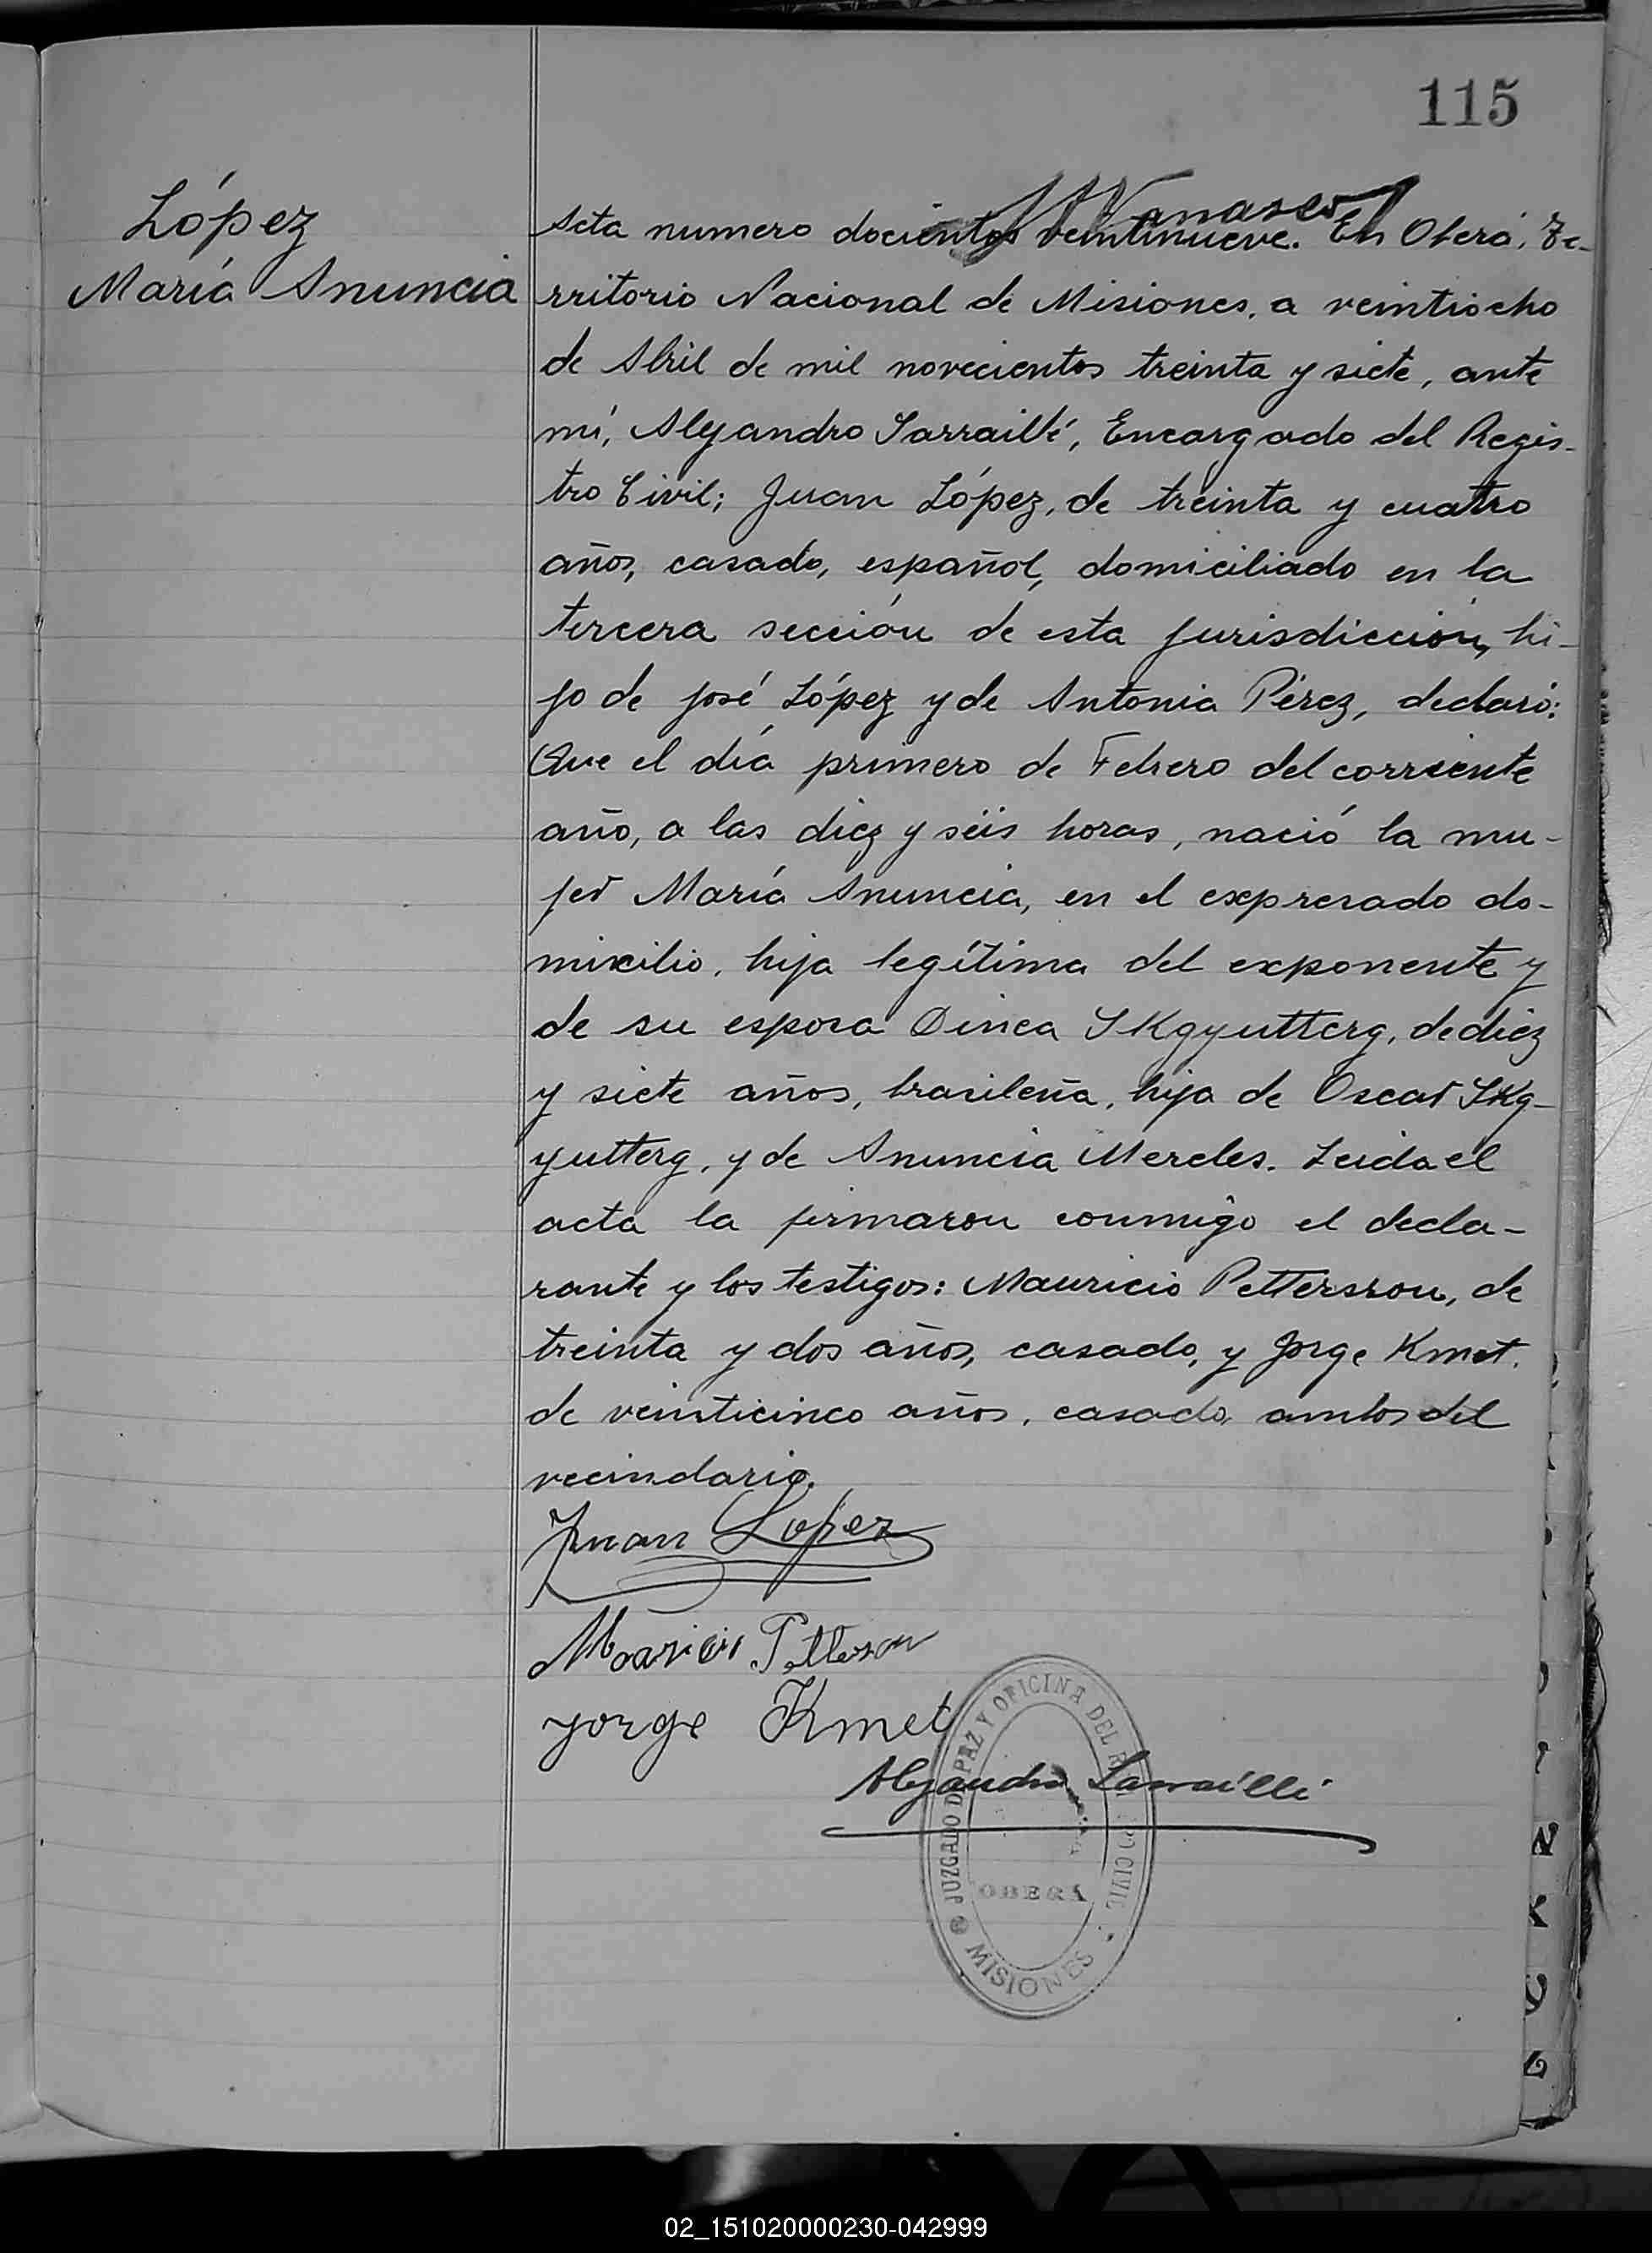 115
López
María Anuncia
Acta numero docientos veintinueve. En Oberá, Te-
rritorio Nacional de Misiones, a veintiocho
de Abril de mil novecientos treinta y siete, ante
mí, Alejandro Sarraillé, Encargado del Regis-
tro Civil; Juan López, de treinta y cuatro
años, casado, español, domiciliado en la
tercera sección de esta jurisdicción, hi-
jo de José López y de Antonia Pérez, declaró:
Que el día primero de Febrero del corriente
año, a las diez y séis horas, nació la mu-
jer María Anuncia, en el expresado do-
micilio, hija legítima del exponente y
de su esposa Dinca SKgyutterg, de diez
y siete años, brasileña, hija de Oscar SKg-
yutterg, y de Anuncia Mereles. Leida el
acta la firmaron conmigo el decla-
rante y los testigos: Mauricio Pettersson, de
treinta y dos años, casado, y Jorge Kmet,
de veinticinco años, casado, ambos del
vecindario.
Juan Lopez
Petterson
Jorge Kmet
Alejandro Sarraillé
JUZGADO DE PAZ Y OFICINA DEL CIVIL
OBERÁ
MISIONES
N
K
02_151020000230-042999